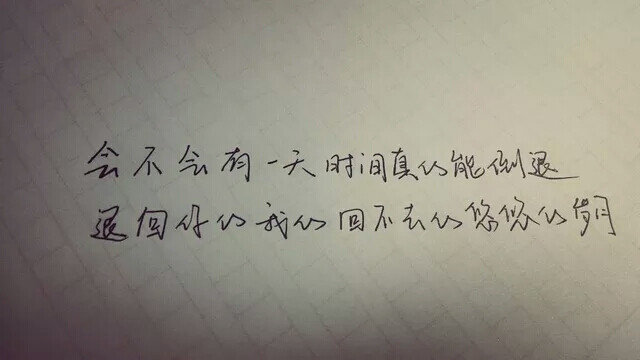 会不会有一天时间真的能倒退
退回你的我的回不去的悠悠的岁月